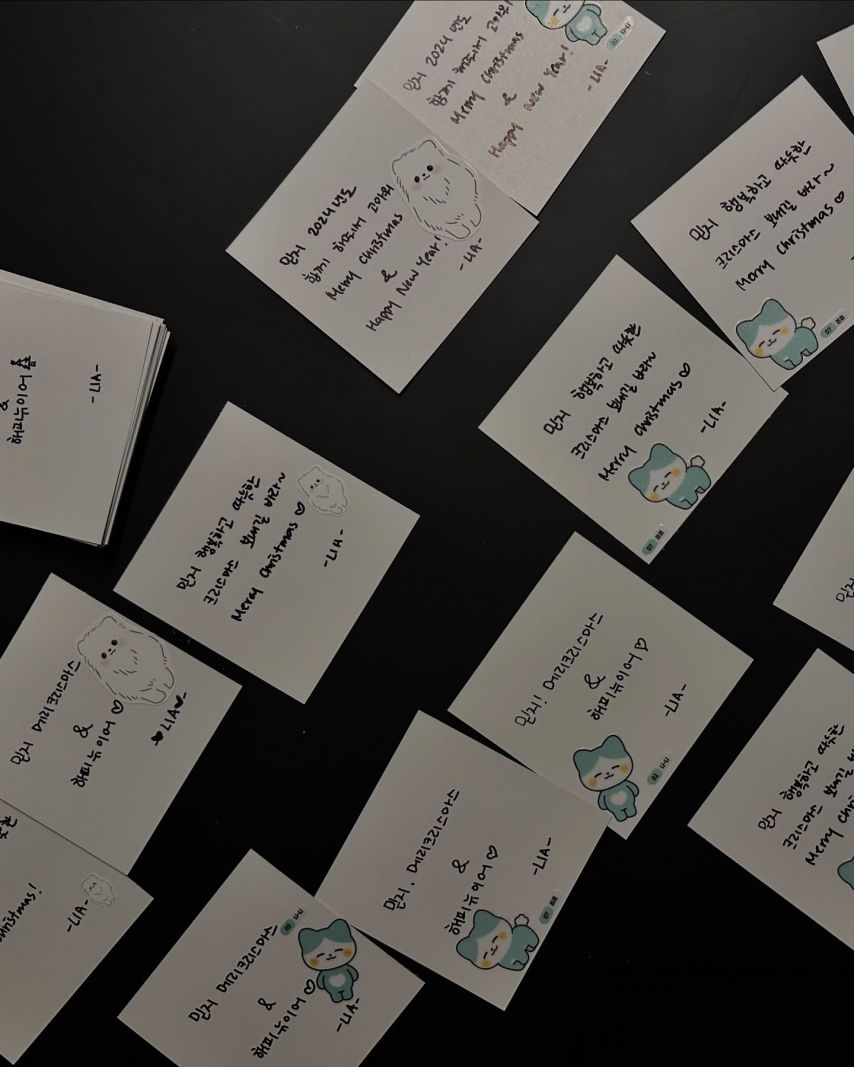 믿지 2024년도
함께 해줘서 고마워
Merry Christmas
&
Happy New Year!
-LIA-
02
믿지 2024년도
함께 해줘서 고마워
Merry Christmas
&
Happy New Year!
-LIA-
믿지 행복하고 따뜻한
크리스마스 보내길 바라~
Merry Christmas♡
07
믿지 행복하고 따뜻한
크리스마스 보내길 바라~
Merry Christmas♡
-LIA-
07
&
해피뉴이어
-LIA-
믿지 행복하고 따뜻한
크리스마스 보내길 바라~
Merry Christmas♡
-LIA-
믿지! 메리크리스마스
&
해피뉴이어♡
-LIA-
02
믿지 메리크리스마스
&
해피뉴이어♡
♥LIA♥
믿지, 메리크리스마스
&
해피뉴이어♡
-LIA-
07
믿지 행복하고 따뜻한
크리스마스 보내길
Merry Christmas
믿지 메리크리스마스
&
해피뉴이어♡
-LIA-
Christmas!
-LIA-